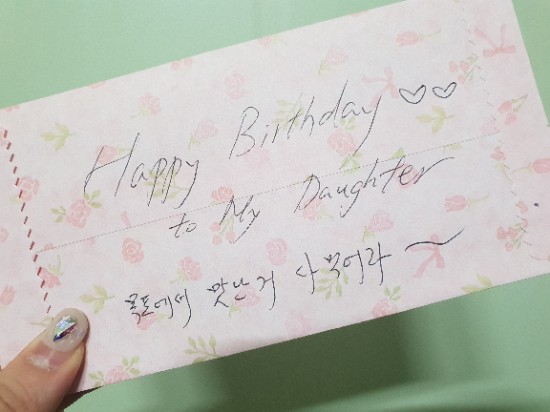 Happy Birthday ♡♡
to My Daughter
목포에서 맛난거 사먹어라 ~